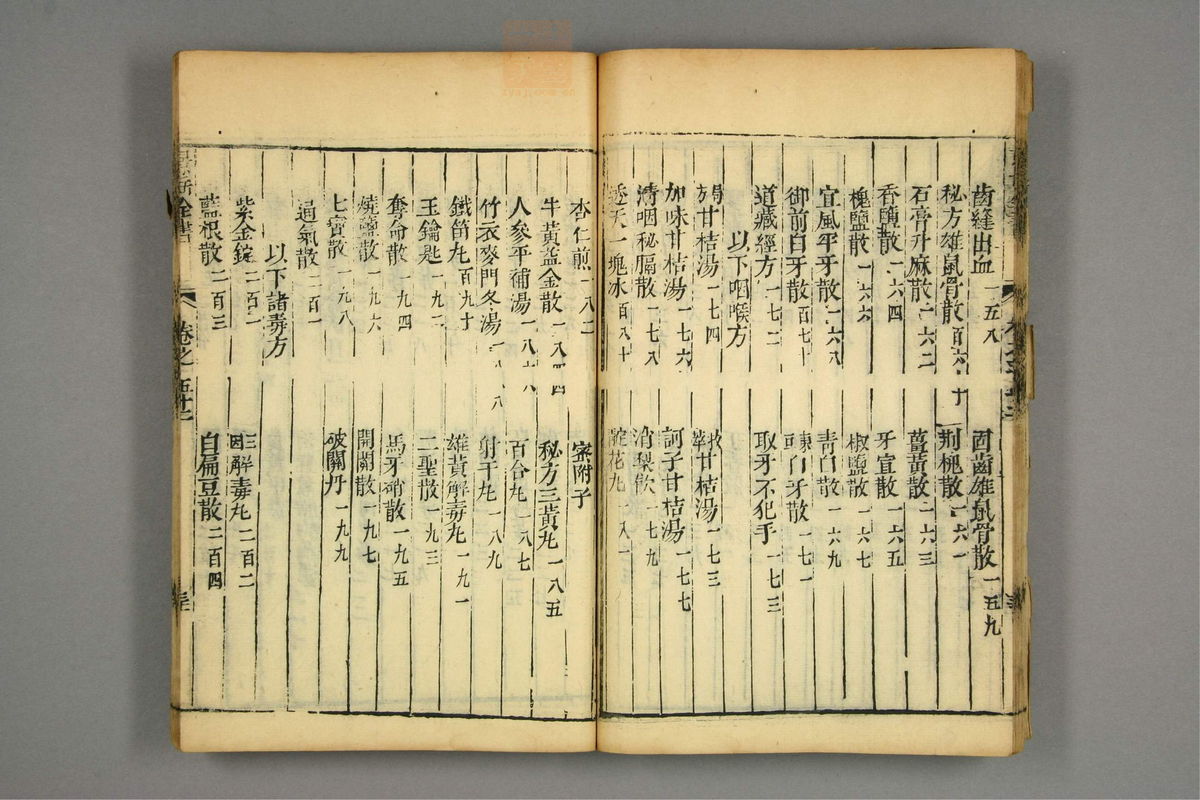 齒縫出血 一五八
固齒雄鼠骨散 一五九
秘方雄鼠骨散 百六十
荊槐散 一六一
石膏升麻散 一六二
薑黃散 一六三
香鹽散 一六四
牙宣散 一六五
槐鹽散 一六六
椒鹽散 一六七
宜風平牙散 一六八
青白散 一六九
御前白牙散 百七十
白牙散 一七一
道藏經方 一七二
取牙不犯手 一七三
以下咽喉方
甘桔湯 一七四
甘桔湯 一七三
加味甘桔湯 一七六
訶子甘桔湯 一七七
清咽秘膈散 一七八
消梨飲 一七九
透天一塊冰 百八十
花丸 一八一
杏仁煎 一八二
蜜附子
牛黃益金散 一八四
秘方三黃丸 一八五
人參平補湯 一八六
百合丸 一八七
竹衣麥門冬湯 一八八
射干丸 一八九
鐵笛丸 百九十
雄黃解毒丸 一九一
玉鑰匙 一九二
二聖散 一九三
奪命散 一九四
馬牙硝散 一九五
燒鹽散 一九六
開關散 一九七
七寶散 一九八
破關丹 一九九
通氣散 二百一
以下諸毒方
紫金錠 二百二
解毒丸 二百二
藍根散 二百三
白扁豆散 二百四
全書
卷之五十七